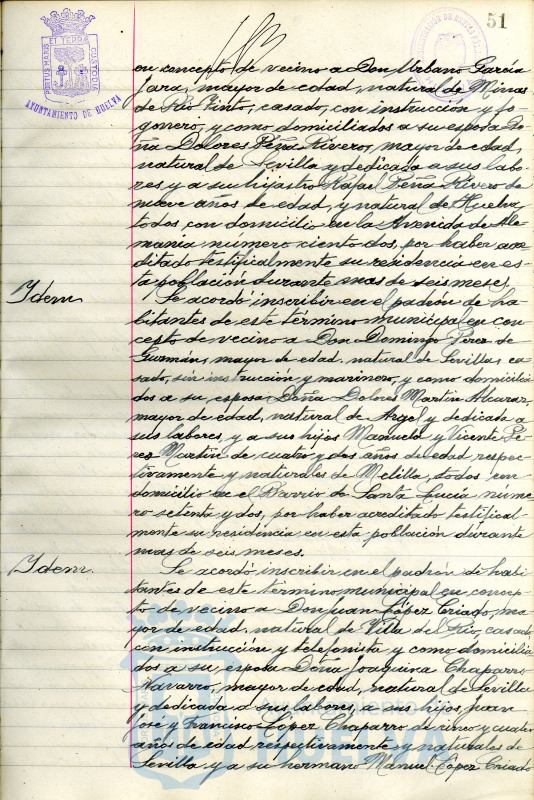 51
PORTUS MARIS ET TERRÆ CUSTODIA
AYUNTAMIENTO DE HUELVA
en concepto de vecino a Don Urbano García
Jara, mayor de edad, natural de Minas
de Rio Tinto, casado, con instrucción y fo-
gonero, y como domiciliados a su esposa Do-
ña Dolores Peña Riveros, mayor de edad,
natural de Sevilla y dedicada a sus labo-
res, y a su hijastro Rafael Peña Rivero de
nueve años de edad, y natural de Huelva,
todos con domicilio en la Avenida de Ale-
mania numero ciento dos, por haber acre-
ditado testificalmente su residencia en es-
ta población durante mas de seis meses,
Idem.
Se acordó inscribir en el padrón de ha-
bitantes de este término municipal en con-
cepto de vecino a Don Domingo Perez de
Guzmán, mayor de edad, natural de Sevilla, ca-
sado, sin instrucción y marinero, y como domicilia-
dos a su esposa Doña Dolores Martín
mayor de edad, natural de Argel y dedicada a
sus labores, y a sus hijos Manuela y Vicente Pé-
rez Martín de cuatro y dos años de edad respec-
tivamente y naturales de Melilla, todos con
domicilio en el Barrio de Santa Lucía núme-
ro setenta y dos, por haber acreditado testifical-
mente su residencia en esta población durante
mas de seis meses.
Idem.
Se acordó inscribir en el padron de habi-
tantes de este término municipal en concep-
to de vecino a Don Juan López Criado, ma-
yor de edad, natural de Villa del Rio, casado
con instruccion y telefonista y como domicilia-
dos a su esposa Doña Joaquina Chaparro
Navarro, mayor de edad, natural de Sevilla
y dedicada a sus labores, a sus hijos Juan
José y Francisco López Chaparro de cinco y cuatro
años de edad respectivamente y naturales de
Sevilla, y a su hermano Manuel López Criado
HUELVA